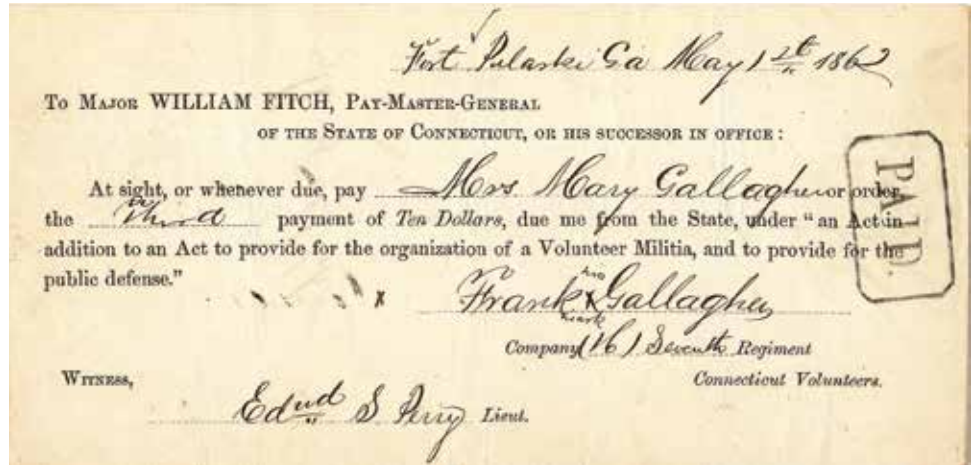 Fort Pulaski Ga May 12th 1862
To Major WILLIAM FITCH, Pay-Master-General
of the State of Connecticut, or his successor in office :
At sight, or whenever due, pay Mrs Mary Gallagher or order,
the Third payment of Ten Dollars, due me from the State, under "an Act in
addition to an Act to provide for the organization of a Volunteer Militia, and to provide for the
public defense."
x Frank his x mark Gallagher
Company (H) Seventh Regiment
Connecticut Volunteers.
Witness,
Edwd S Perry Lieut.
PAID.